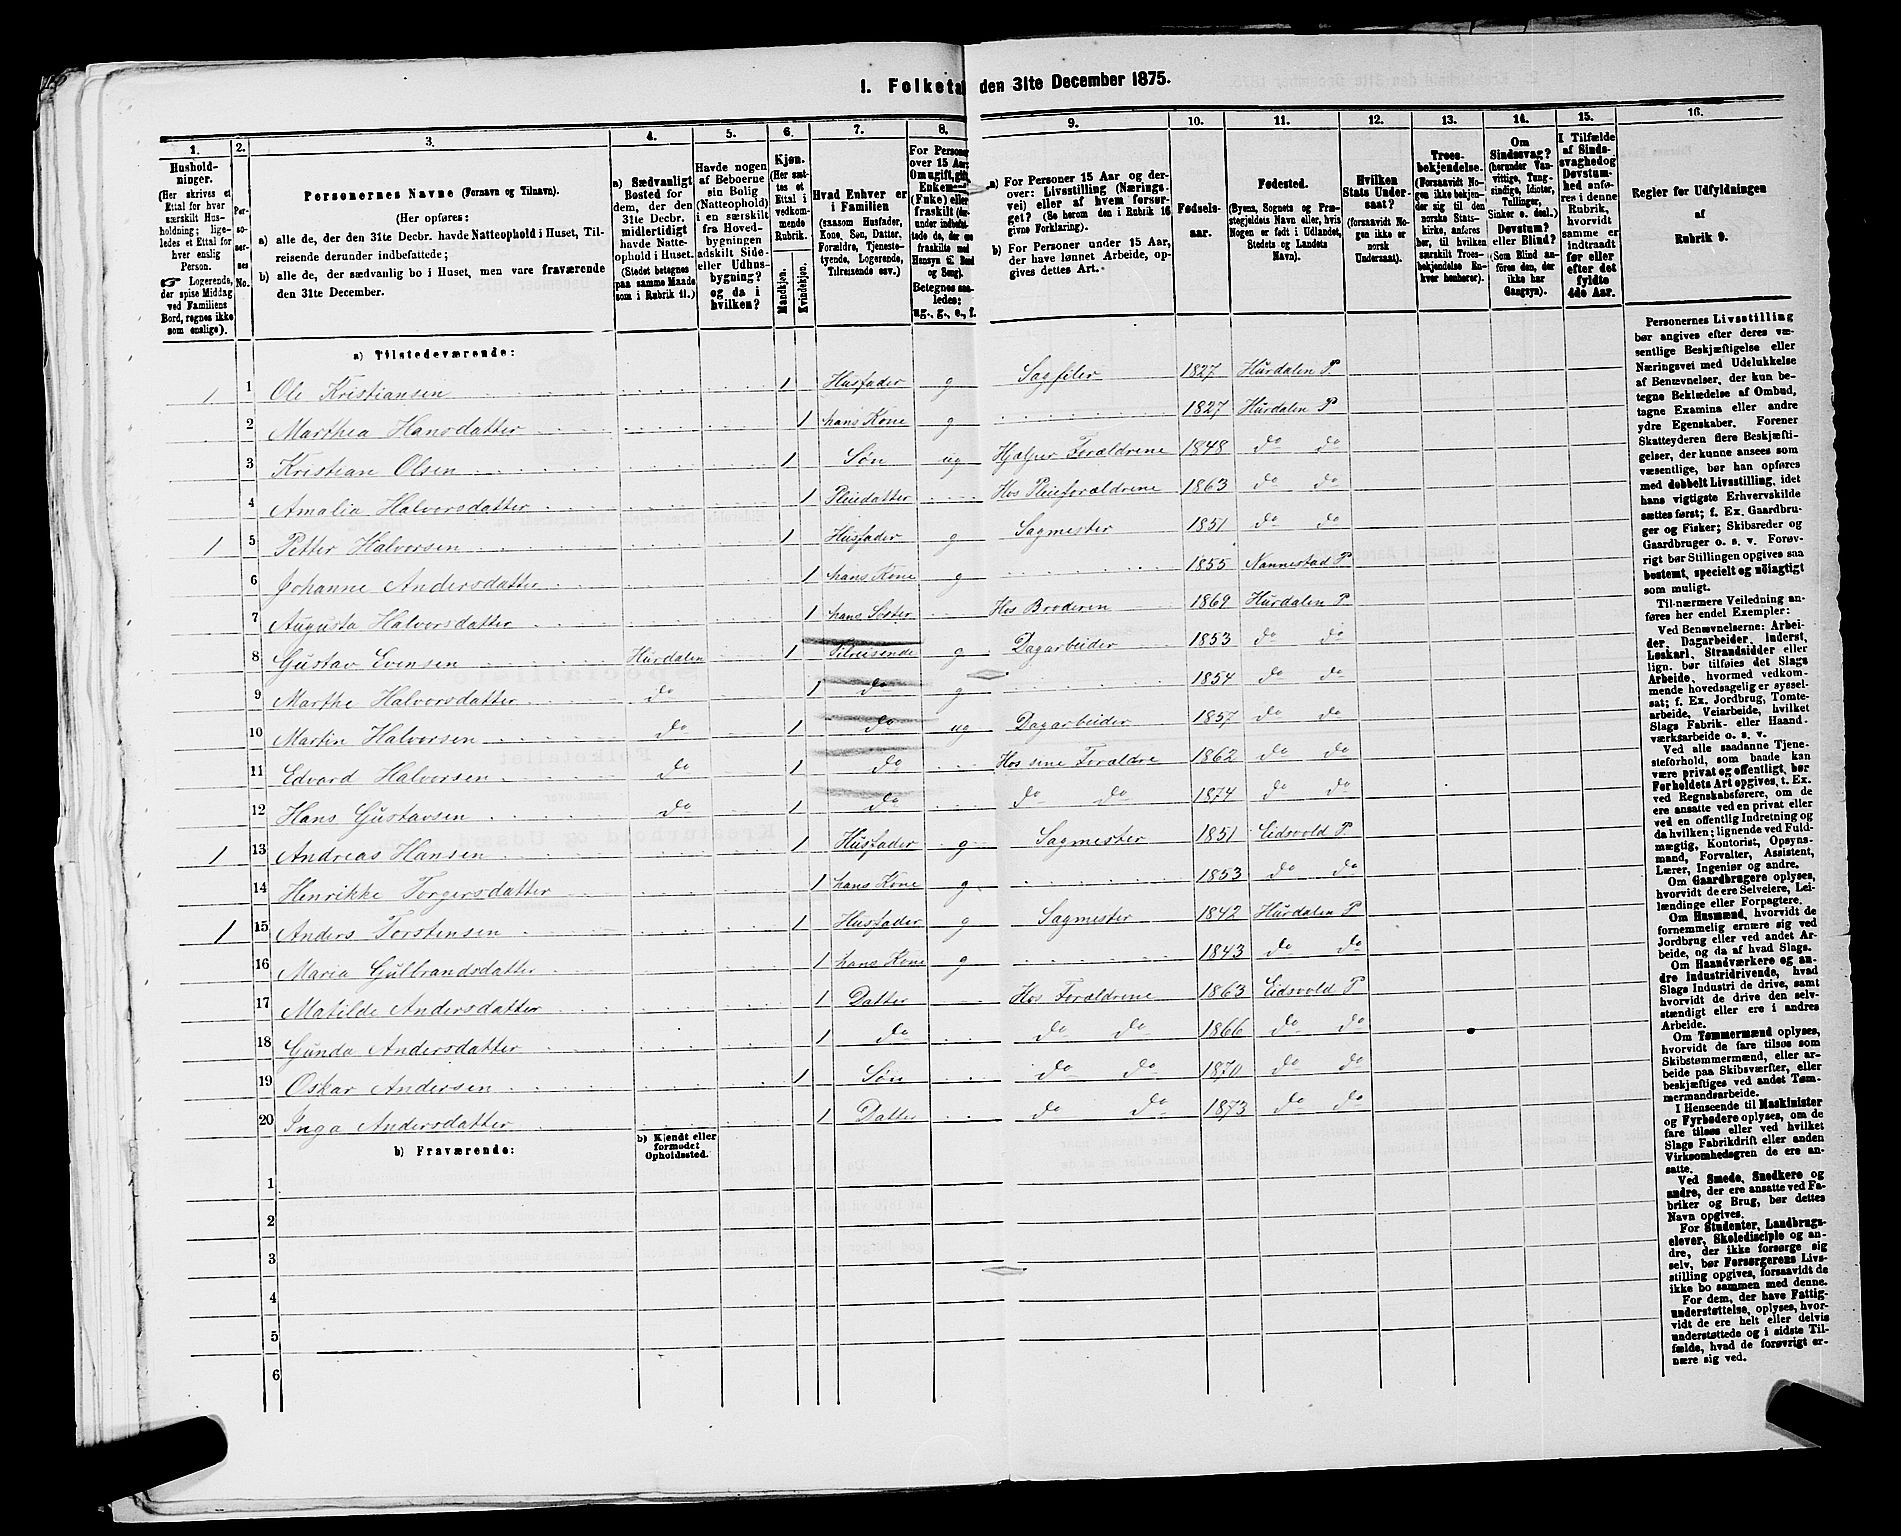 1. Folketal den 31te December 1875.
1. 2. 3. 4. 5. 6. 7. 8. 9. 10. 11. 12. 13. 14. 15. 16.
Hushold-
ninger.
(Her skrives et
Ettal for hver
særskilt Hus-
holdning; lige-
ledes et Ettal for
hver enslig
Person.
☞ Logerende,
der spise Middag
ved Familiens
Bord, regnes ikke
som enslige).
Per-
so-
ner-
nes
No.
Personernes Navne (Fornavn og Tilnavn).
(Her opføres:
a) alle de, der den 31te Decbr. havde Natteophold i Huset, Til-
reisende derunder indbefattede;
b) alle de, der sædvanlig bo i Huset, men vare fraværende
den 31te December.
a) Sædvanligt
Bosted for
dem, der den
31te Decbr.
midlertidigt
havde Natte-
ophold i Huset.
(Stedet betegnes
paa samme Maade
som i Rubrik 11.)
Havde nogen
af Beboerne
sin Bolig
(Natteophold)
i en særskilt
fra Hoved-
bygningen
adskilt Side-
eller Udhus-
bygning?
og da i
hvilken?
Kjøn.
(Her sæt-
tes et
Ettal i
vedkom-
mende
Rubrik.
Mandkjøn.
Kvindekjøn.
Hvad Enhver er
i Familien
(saasom Husfader,
Kone, Søn, Datter,
Forældre, Tjeneste-
tyende, Logerende,
Tilreisende osv.)
For Personer
over 15 Aar:
Om ugift, gift,
Enkemand
(Enke) eller
fraskilt
Betegnes saa-
ledes:
ug., g., e., f.
a) For Personer 15 Aar og der-
over: Livsstilling (Nærings-
vei) eller af hvem forsør-
get? (Se herom den i Rubrik 16
givne Forklaring).
b) For Personer under 15 Aar,
der have lønnet Arbeide, op-
gives dettes Art.
Fødsels-
aar.
Fødested.
(Byens, Sognets og Præ-
stegjeldets Navn eller, hvis
Nogen er født i Udlandet,
Stedets og Landets
Navn).
Hvilken
Stats Under-
saat?
(forsaavidt No-
gen ikke er
norsk
Undersaat).
Troes-
bekjendelse.
(Forsaavidt No-
gen ikke bekjen-
der sig til den
norske Stats-
kirke, anføres
her, til hvilken
særskilt Troes-
bekjendelse En-
hver henhører).
Om
Sindssvag?
(herunder Van-
vittige, Tung-
sindige, Idioter,
Tullinger,
Sinker o. desl.)
Døvstum?
eller Blind?
(Som Blind an-
føres den, der
ikke har
Gangsyn).
I Tilfælde
af Sinds-
svaghed og
Døvstum-
hed anfø-
res i denne
Rubrik,
hvorvidt
samme er
indtraadt
før eller
efter det
fyldte
4de Aar.
Regler for Udfyldningen
af
Rubrik 9.
a) Tilstedeværende:
1 1 Ole Kristiansen 1 Husfader g Sagfiler 1827 Hurdalen P
2 Marthea Hansdatter 1 hans Kone g 1827 Hurdalen P
3 Kristian Olsen 1 Søn ug Hjælper Forældrene 1848 do do
4 Amalia Halvorsdatter 1 Pleiedatter Hos Pleieforældrene 1863 do do
1 5 Petter Halvorsen 1 Husfader g Sagmester 1851 do do
6 Johanne Andersdatter 1 hans Kone g 1855 Nannestad P
7 Augusta Halvorsdatter 1 hans Søster Hos Broderen 1869 Hurdalen P
8 Gustav Evensen Hurdalen 1 Tilreisende g Dagarbeider 1853 do do
9 Marthe Halvorsdatter do 1 do g 1854 do do
10 Martin Halvorsen do 1 do ug Dagarbeider 1857 do do
11 Edvard Halvorsen do 1 do Hos sine Forældre 1862 do do
12 Hans Gustavsen do 1 do do do 1874 do do
1 13 Andreas Hansen 1 Husfader g Sagmester 1851 Eidsvold P
14 Henrikke Torgersdatter 1 hans Kone g 1853 do do
1 15 Anders Torstensen 1 Husfader g Sagmester 1842 Hurdalen P
16 Maria Gulbrandsdatter 1 hans Kone g 1843 do do
17 Matilde Andersdatter 1 Datter Hos Forældrene 1863 Eidsvold P
18 Gunda Andersdatter 1 do do do 1866 do do
19 Oskar Andersen 1 Søn do do 1870 do do
20 Inga Andersdatter 1 Datter do do 1873 do do
b) Fraværende:
b) Kjendt eller
formodet
Opholdssted.
1
2
3
4
5
6
Personernes Livsstilling
bør angives efter deres væ-
sentlige Beskjæftigelse eller
Næringsvei med Udelukkelse
af Benævnelser, der kun be-
tegne Beklædelse af Ombud,
tagne Examina eller andre
ydre Egenskaber. Forener
Skatteyderen flere Beskjæfti-
gelser, der kunne ansees som
væsentlige, bør han opføres
med dobbelt Livsstilling, idet
hans vigtigste Erhvervskilde
sættes først; f. Ex. Gaardbru-
ger og Fisker; Skibsreder og
Gaardbruger o. s. v. Forøv-
rigt bør Stillingen opgives saa
bestemt, specielt og nöiagtigt
som muligt.
Til nærmere Veiledning an-
føres her endel Exempler:
Ved Benævnelserne: Arbei-
der, Dagarbeider, Inderst,
Løskarl, Strandsidder eller
lign. bør tilføies det Slags
Arbeide, hvormed vedkom-
mende hovedsagelig er syssel-
sat; f. Ex. Jordbrug, Tomte-
arbeide, Veiarbeide, hvilket
Slags Fabrik- eller Haand-
værksarbeide o. s. v.
Ved alle saadanne Tjene-
steforhold, som baade kan
være privat og offentligt, bør
Forholdets Art opgives, t. Ex.
ved Regnskabsførere, om de
ere ansatte ved en privat eller
ved en offentlig Indretning og
da hvilken; lignende ved Fuld-
mægtig, Kontorist, Opsyns-
mand, Forvalter, Assistent,
Lærer, Ingeniør og andre.
Om Gaardbrugere oplyses,
hvorvidt de ere Selveiere, Lei-
lændinge eller Forpagtere.
Om Husmænd, hvorvidt de
fornemmelig ernære sig ved
Jordbrug eller ved andet Ar-
beide, og da af hvad Slags.
Om Haandværkere og an-
dre Industridrivende, hvad
Slags Industri de drive, samt
hvorvidt de drive den selv-
stændigt eller ere i andres
Arbeide.
Om Tømmermænd oplyses,
hvorvidt de fare tilsøs som
Skibstømmermænd, eller ar-
beide paa Skibsværfter, eller
beskjæftiges ved andet Tøm-
mermandsarbeide.
I Henseende til Maskinister
og Fyrbødere oplyses, om de
fare tilsøs eller ved hvilket
Slags Fabrikdrift eller anden
Virksomhedsgren de ere an-
satte.
Ved Smede, Snedkere og
andre, der ere ansatte ved Fa-
briker og Brug, bør dettes
Navn opgives.
For Studenter, Landbrugs-
elever, Skoledisciple og an-
dre, der ikke forsørge sig
selv, bør Forsørgerens Livs-
stilling opgives, forsaavidt de
ikke bo sammen med denne.
For dem, der have Fattig-
understøttelse, oplyses, hvor-
vidt de ere helt eller delvis
understøttede og i sidste Til-
fælde, hvad de forøvrigt er-
nære sig ved.